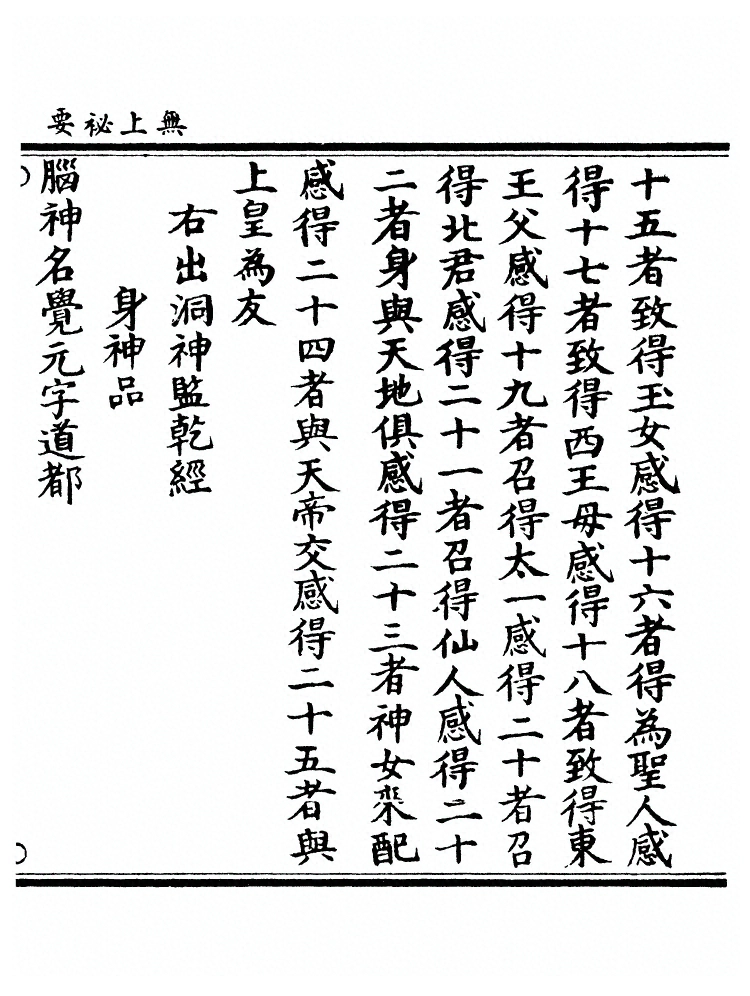 無上祕要
十五者致得玉女感得十六者得為聖人感
得十七者致得西王母感得十八者致得東
王父感得十九者召得太一感得二十者召
得北君感得二十一者召得仙人感得二十
二者身與天地俱感得二十三者神女來配
感得二十四者與天帝交感得二十五者與
上皇為友
右出洞神監乾經
身神品
腦神名覺元字道都